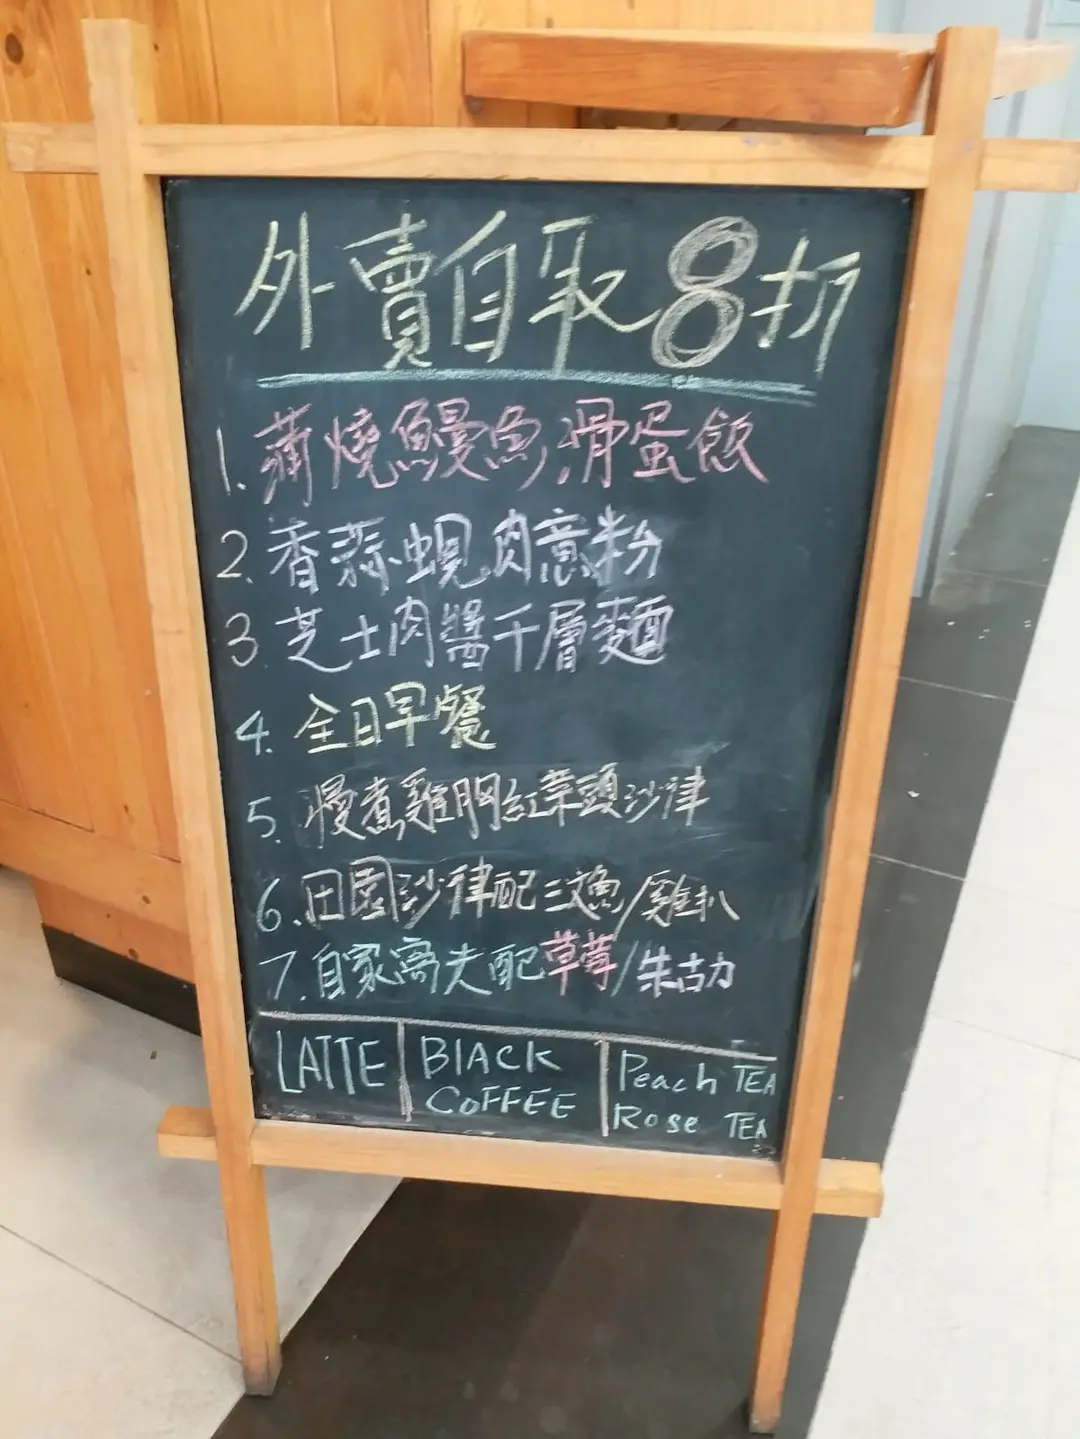 外賣自取8折
1. 蒲燒鰻魚滑蛋飯
2. 香蒜蜆肉意粉
3. 芝士肉醬千層麵
4. 全日早餐
5. 慢煮雞胸紅菜頭沙律
6. 田園沙律配三文魚/雞扒
7. 自家窩夫配草莓/朱古力
LATTE
BLACK
COFFEE
Peach TEA
Rose TEA